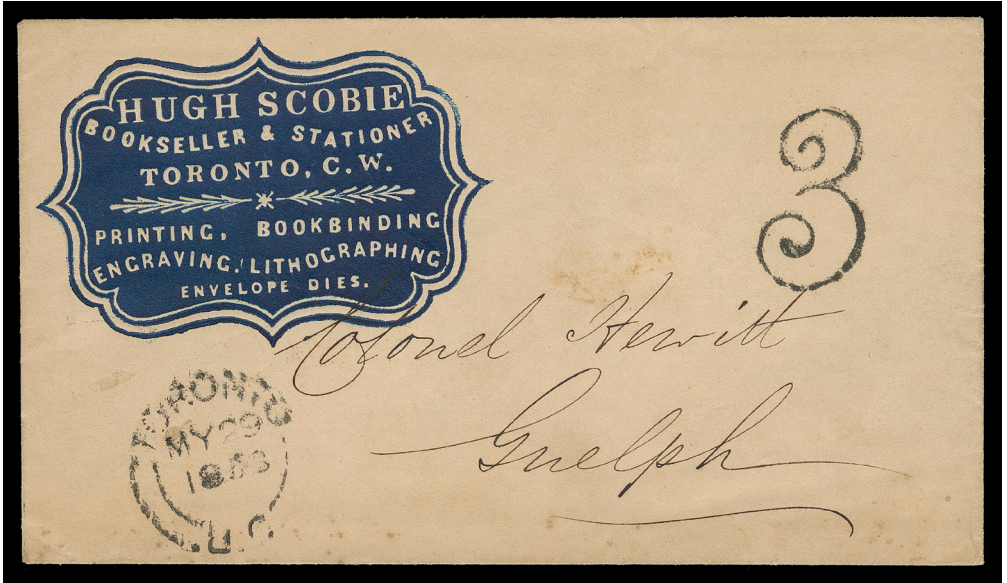 HUGH SCOBIE
BOOKSELLER & STATIONER
TORONTO, C.W.
PRINTING, BOOKBINDING
ENGRAVING, LITHOGRAPHING
ENVELOPE DIES.
3
Colonel Hewitt
Guelph
TORONTO
MY 29
1853